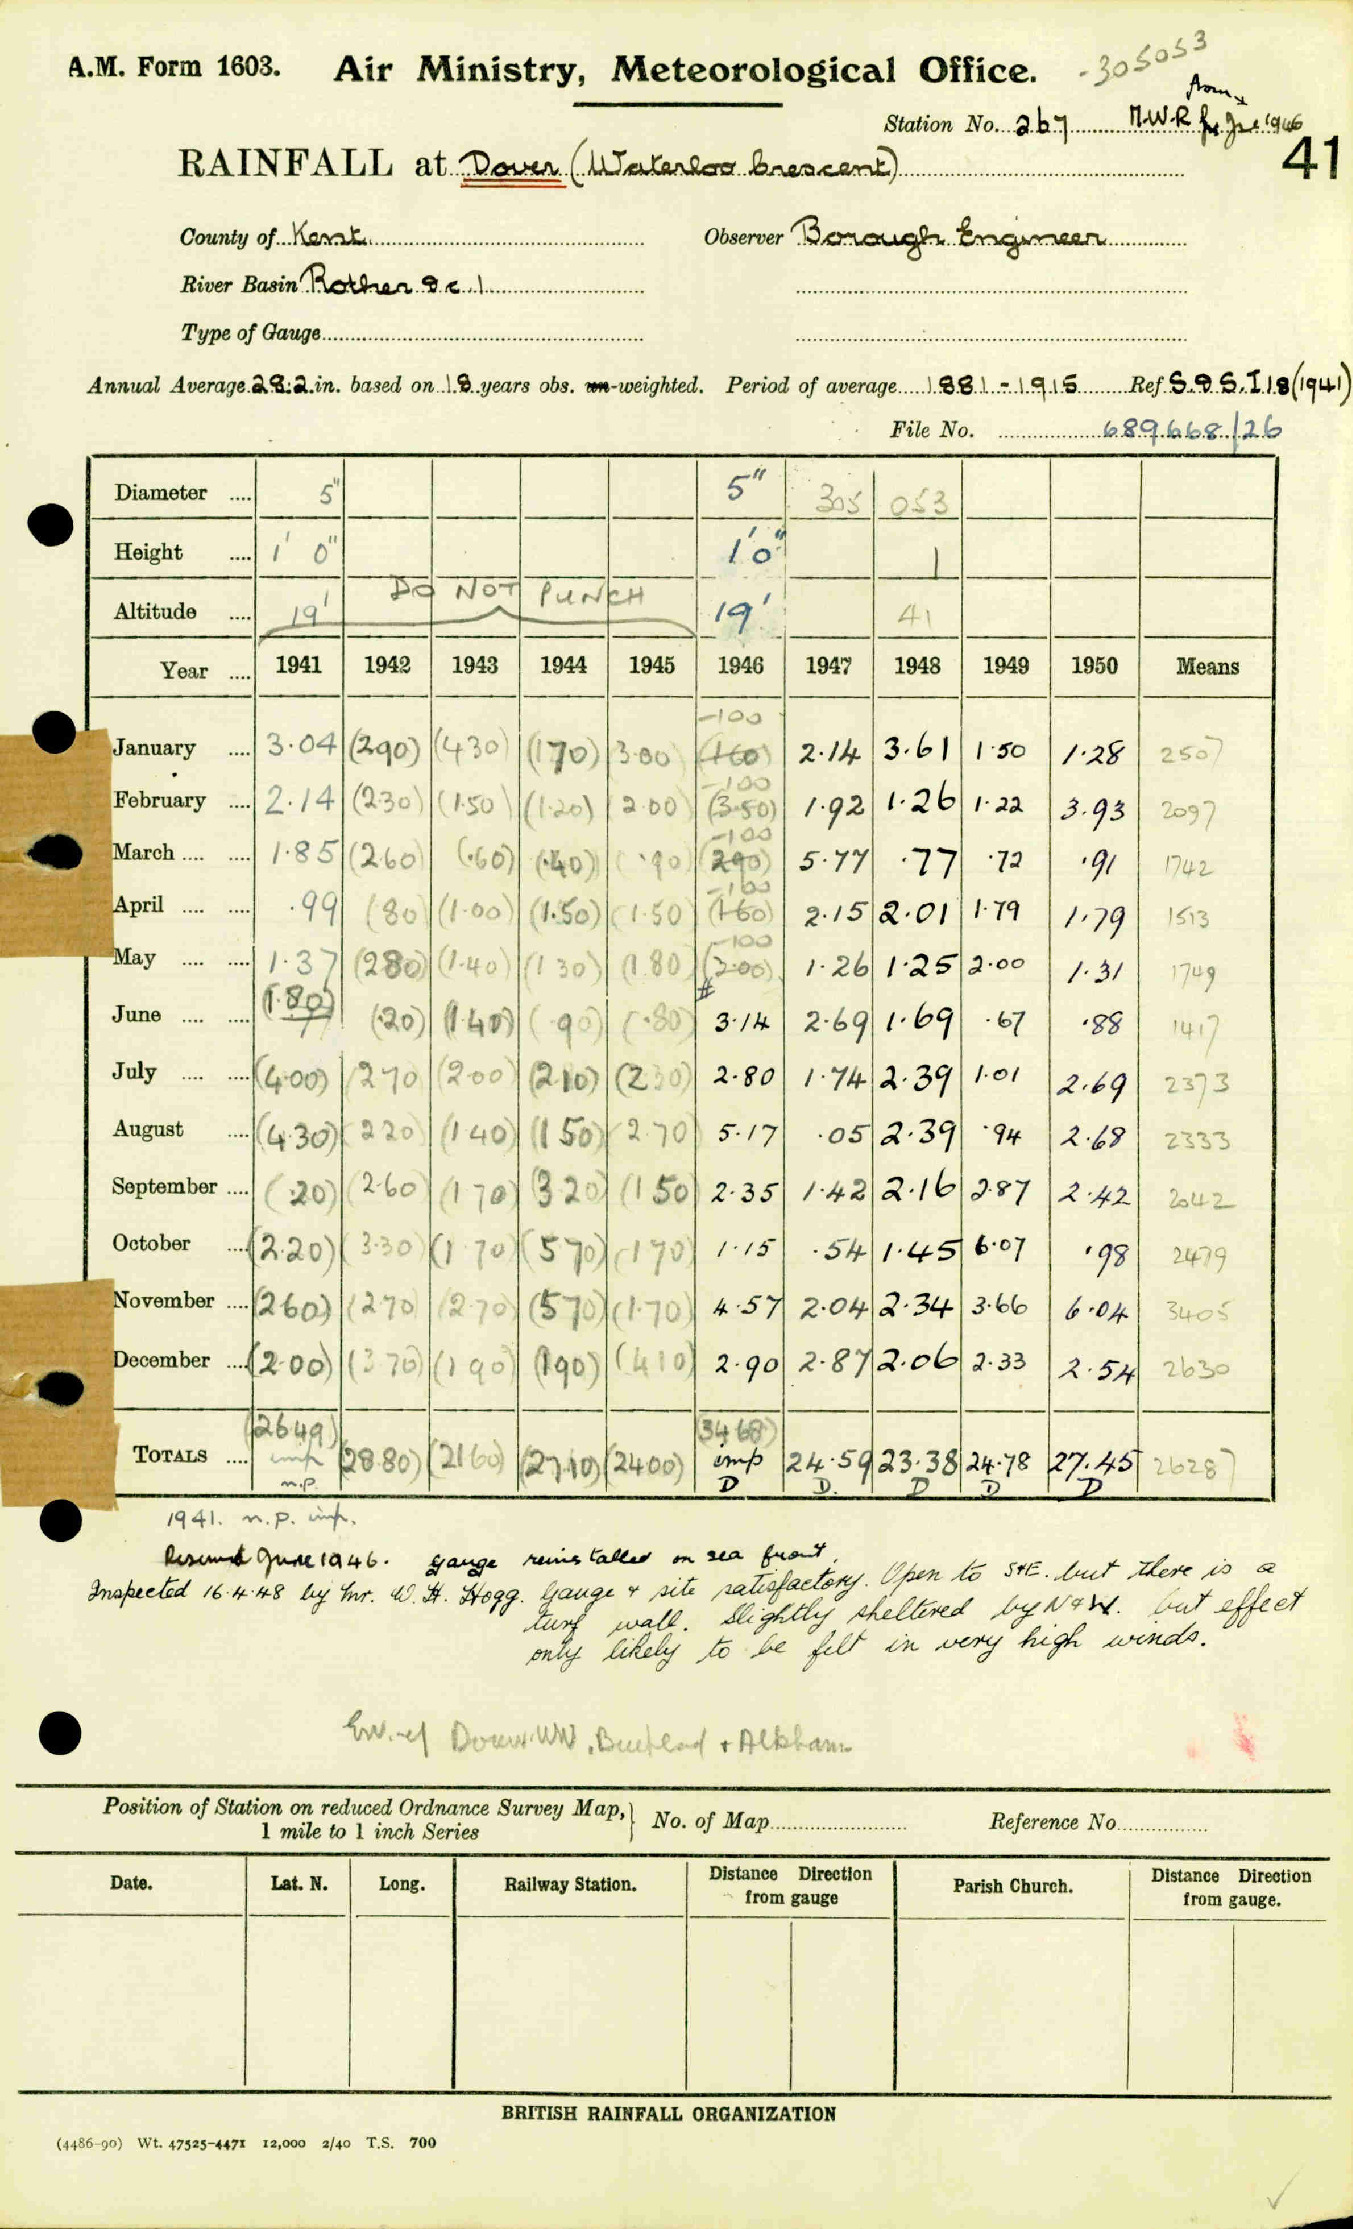 A.M. Form 1603. Air Ministry, Meteorological Office. -305053
from
Station No. 267 M.W.R 1946
41
RAINFALL at Dover (Waterloo Crescent)
County of Kent Observer Borough Engineer
River Basin Rother &c. 1
Type of Gauge
Annual Average 28.2 in. based on 18 years obs. un-weighted. Period of average 1881-1915 Ref S.&S.I 18 (1941)
File No. 689668/26
Diameter .... 5" 5" 305 053
Height .... 1' 0" 1' 0" 1
DO NOT PUNCH
Altitude .... 19' 19' 41
Year .... 1941 1942 1943 1944 1945 1946 1947 1948 1949 1950 Means
-100
January .... 3.04 (290) (430) (170) 3.00 (160) 2.14 3.61 1.50 1.28 2507
-100
February .... 2.14 (230) (1.50) (1.20) (2.00) (3.50) 1.92 1.26 1.22 3.93 2097
-100
March .... .... 1.85 (260) (.60) (.40) (.90) (290) 5.77 .77 .72 .91 1742
-100
April .... .... .99 (80) (1.00) (1.50) (1.50) (160) 2.15 2.01 1.79 1.79 1513
-100
May .... .... 1.37 (280) (1.40) (130) (1.80) (200) 1.26 1.25 2.00 1.31 1749
June .... .... (1.80) (.20) (1.40) (.90) (.80) # 3.14 2.69 1.69 .67 .88 1417
July .... .... (400) (270) (200) (210) (230) 2.80 1.74 2.39 1.01 2.69 2373
August .... (4.30) (220) (140) (150) (2.70) 5.17 .05 2.39 .94 2.68 2333
September .... (.20) (260) (170) (320) (150) 2.35 1.42 2.16 2.87 2.42 2042
October .... (2.20) (3.30) (170) (570) (170) 1.15 .54 1.45 6.07 .98 2479
November .... (260) (270) (270) (570) (1.70) 4.57 2.04 2.34 3.66 6.04 3405
December .... (200) (370) (190) (190) (410) 2.90 2.87 2.06 2.33 2.54 2630
(2649) (3468)
TOTALS .... imp (28.80) (2160) (27.10) (2400) imp 24.59 23.38 24.78 27.45 2628
n.p. D D D D D
1941. n.p. imp.
Resumed June 1946. gauge reinstalled on sea front.
Inspected 16.4.48 by Mr. W. H. Hogg. Gauge & site satisfactory. Open to S & E. but there is a
turf wall. Slightly sheltered by N & W. but effect
only likely to be felt in very high winds.
Dover WW, Buckland + Alkham
Position of Station on reduced Ordnance Survey Map, 1 mile to 1 inch Series } No. of Map Reference No.
Date. Lat. N. Long. Railway Station. Distance Direction from gauge Parish Church. Distance Direction from gauge.
BRITISH RAINFALL ORGANIZATION
(4486-90) Wt. 47525-4471 12,000 2/40 T.S. 700